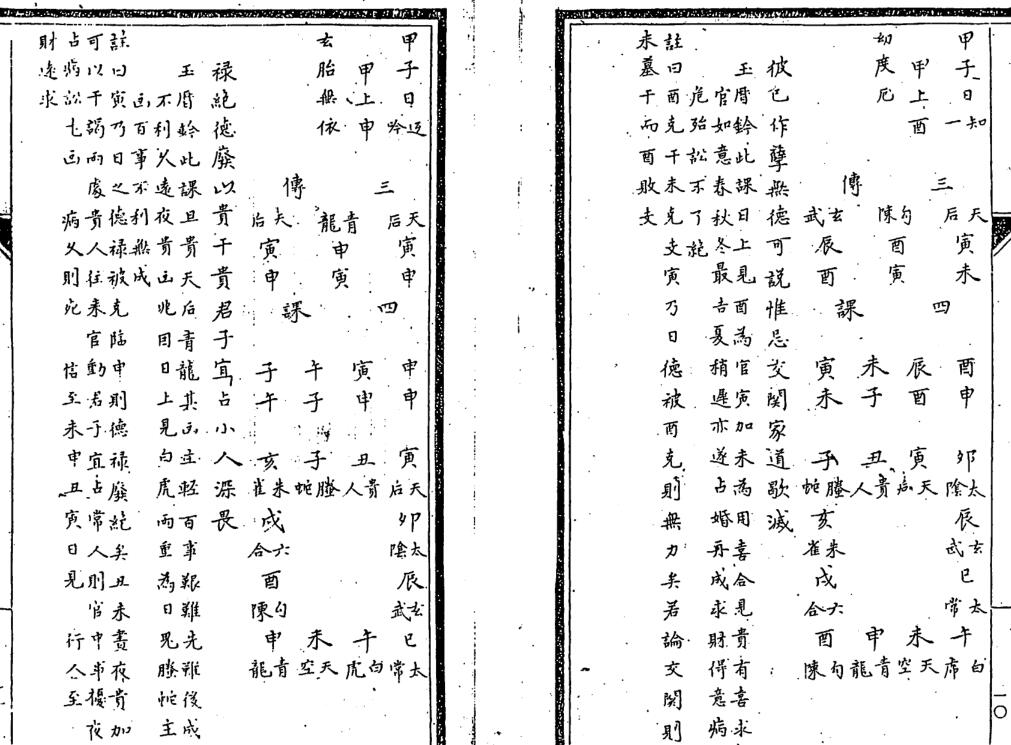 甲子日 知一
甲上酉
劫度厄
三傳
天后 寅未
勾陳 酉寅
玄武 辰酉
四課
酉申 辰酉 未子 寅未
卯 太陰 寅 天后 丑 貴人 子 螣蛇
辰 玄武 亥 朱雀
巳 太常 戌 六合
午 白虎 未 天空 申 青龍 酉 勾陳
彼已作孽無德可説惟忌交関家道歇滅
玉曆鈐此課日上見酉為官寅加未為用喜合見貴有喜求
官如意春秋冬最吉夏稍遲亦遂占婚再成求財得意病
危殆訟不了絶
註曰酉克干未克支寅乃日德被酉克則無力矣若論交関則
未墓干而酉敗支
一〇
甲子日 返吟
甲上申
玄胎無依
三傳
天后 寅申
青龍 申寅
天后 寅申
四課
申申 寅申 午子 子午
寅 天后 丑 貴人 子 螣蛇 亥 朱雀
卯 太陰 戌 六合
辰 玄武 酉 勾陳
巳 太常 午 白虎 未 天空 申 青龍
祿絶德廢以貴干貴君子宜占小人深畏
玉曆鈐此課旦貴天后青龍其凶主輕百事艱難先難後成
不利久遠夜貴凶兆因日上見白虎兩重為日鬼螣蛇主
凶百事不利無成
註曰寅乃日之德祿被克臨申則德祿廢絶矣丑未晝夜貴加
可以干謁兩處貴人往來官動君子宜占常人則官中事擾夜
占病訟七凶 病久則死 信至未申丑寅日見 行人至
財遠求